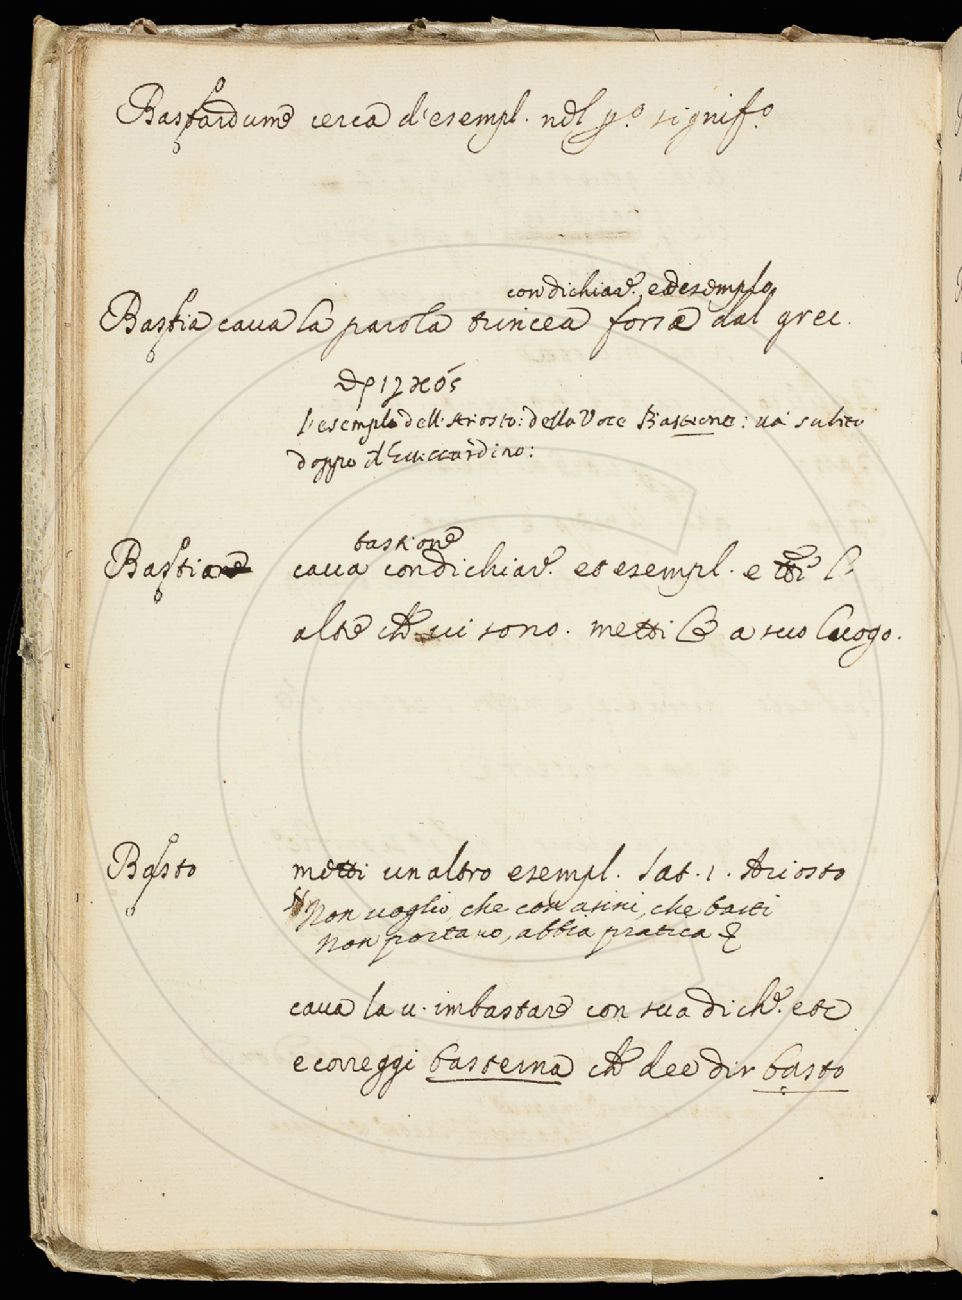 Bastardume cerca d'esempl. nel p.o signif.o
con dichiar.e, ed esemplo
Bastia caua la parola trincea forse dal grec.
l'esemplo dell'Ariosto: della Voce Bastione: ua subito
doppo il Guiccardino:
bastione
Bastione caua con dichiar.e et esempl. e
altre ch.e ui sono. metti le a suo luogo.
Basto metti un altro esempl. sat. 1. Ariosto
Non uoglio, che con asini, che basti
Non portano, abbia pratica
caua la u. imbastare con sua dich.e etc
e correggi basterna ch.e dee dir basto